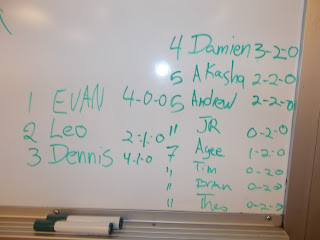 1 EVAN 4-0-0
2 Leo 2-1-0
3 Dennis 4-1-0
4 Damien 3-2-0
5 AKasha 2-2-0
5 Andrew 2-2-0
" JR 0-2-0
7 1-2-0
" Tim 0-2-0
" Brian 0-2-0
" 0-2-0